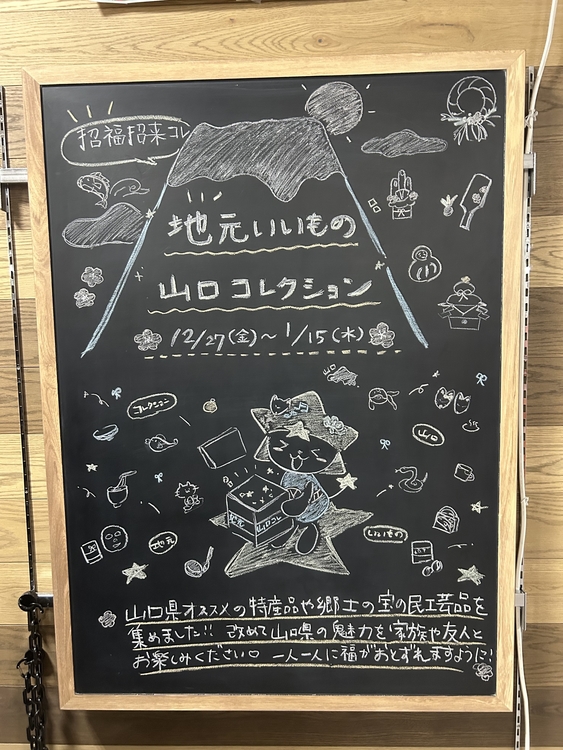 招福招来コレ
地元いいもの
山口コレクション
12/27(金)～1/15(水)
山口
コレクション
山口
地元
山口コレ
地元
いいもの
山口県オススメの特産品や郷土の宝の民工芸品を
集めました!! 改めて山口県の魅力を家族や友人と
お楽しみください♡ 一人一人に福がおとずれますように!